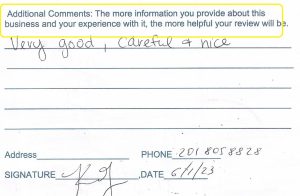 Additional Comments: The more information you provide about this
business and your experience with it, the more helpful your review will be.
Very good, careful & nice
Address PHONE 201 805 8828
SIGNATURE ,DATE 6/1/23